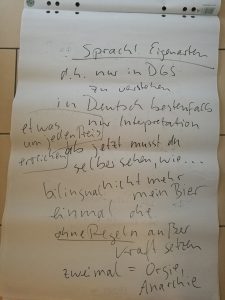 : Spracht Eigenarten
d.h. nur in DGS
zu verstehen
in Deutsch bestenfalls
nur Interpretation
etwas
um jeden Preis
erreichen
ab jetzt musst du
selber sehen, wie...
bilingual nicht mehr
mein Bier
einmal die
ohne Regeln außer
Kraft setzen
zweimal = Orgie,
Anarchie